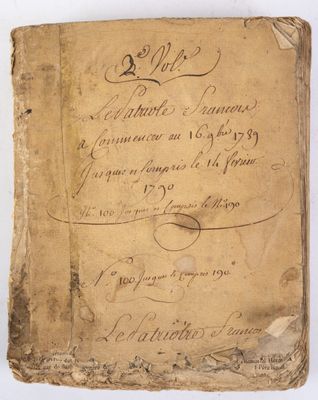 2.e Vol.e
Le Patriote Francois
a Commencer au 16 9bre 1789
Jusques et Compris le 14 fevrier
1790
No. 100 Jusques et Compris le No. 190
No. 100 Jusques et compris 190
Le Patriotre Francois